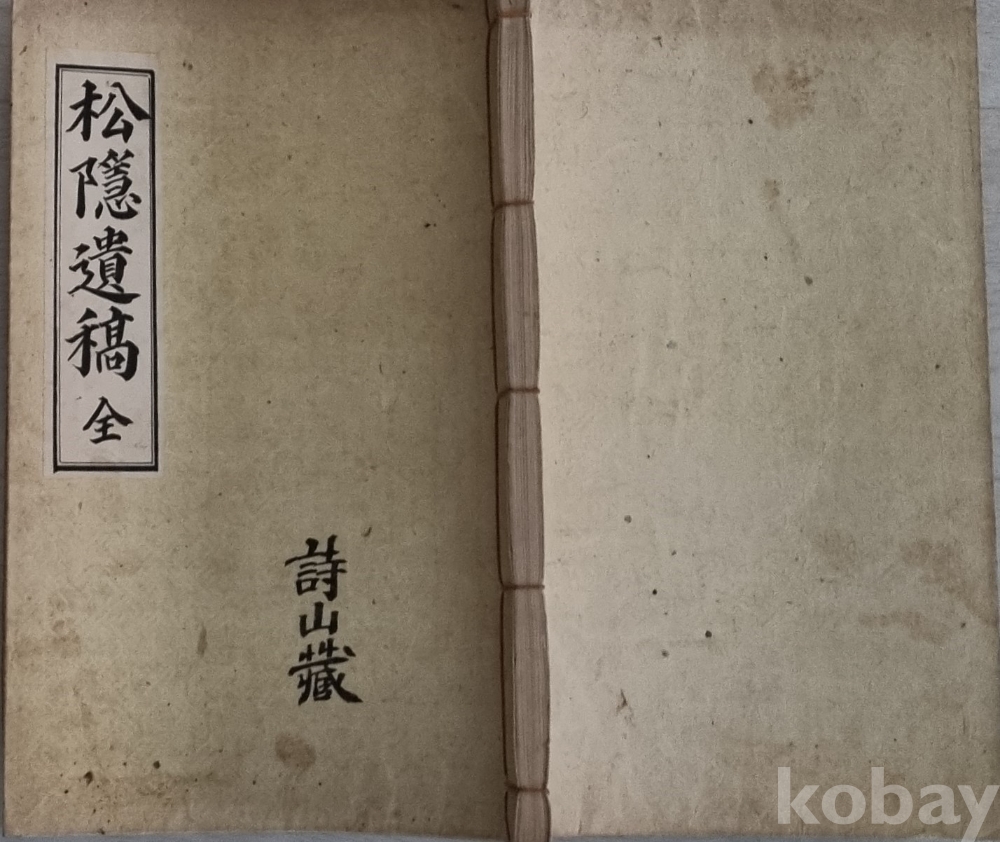 松隱遺稿 全
詩山藏
kobay